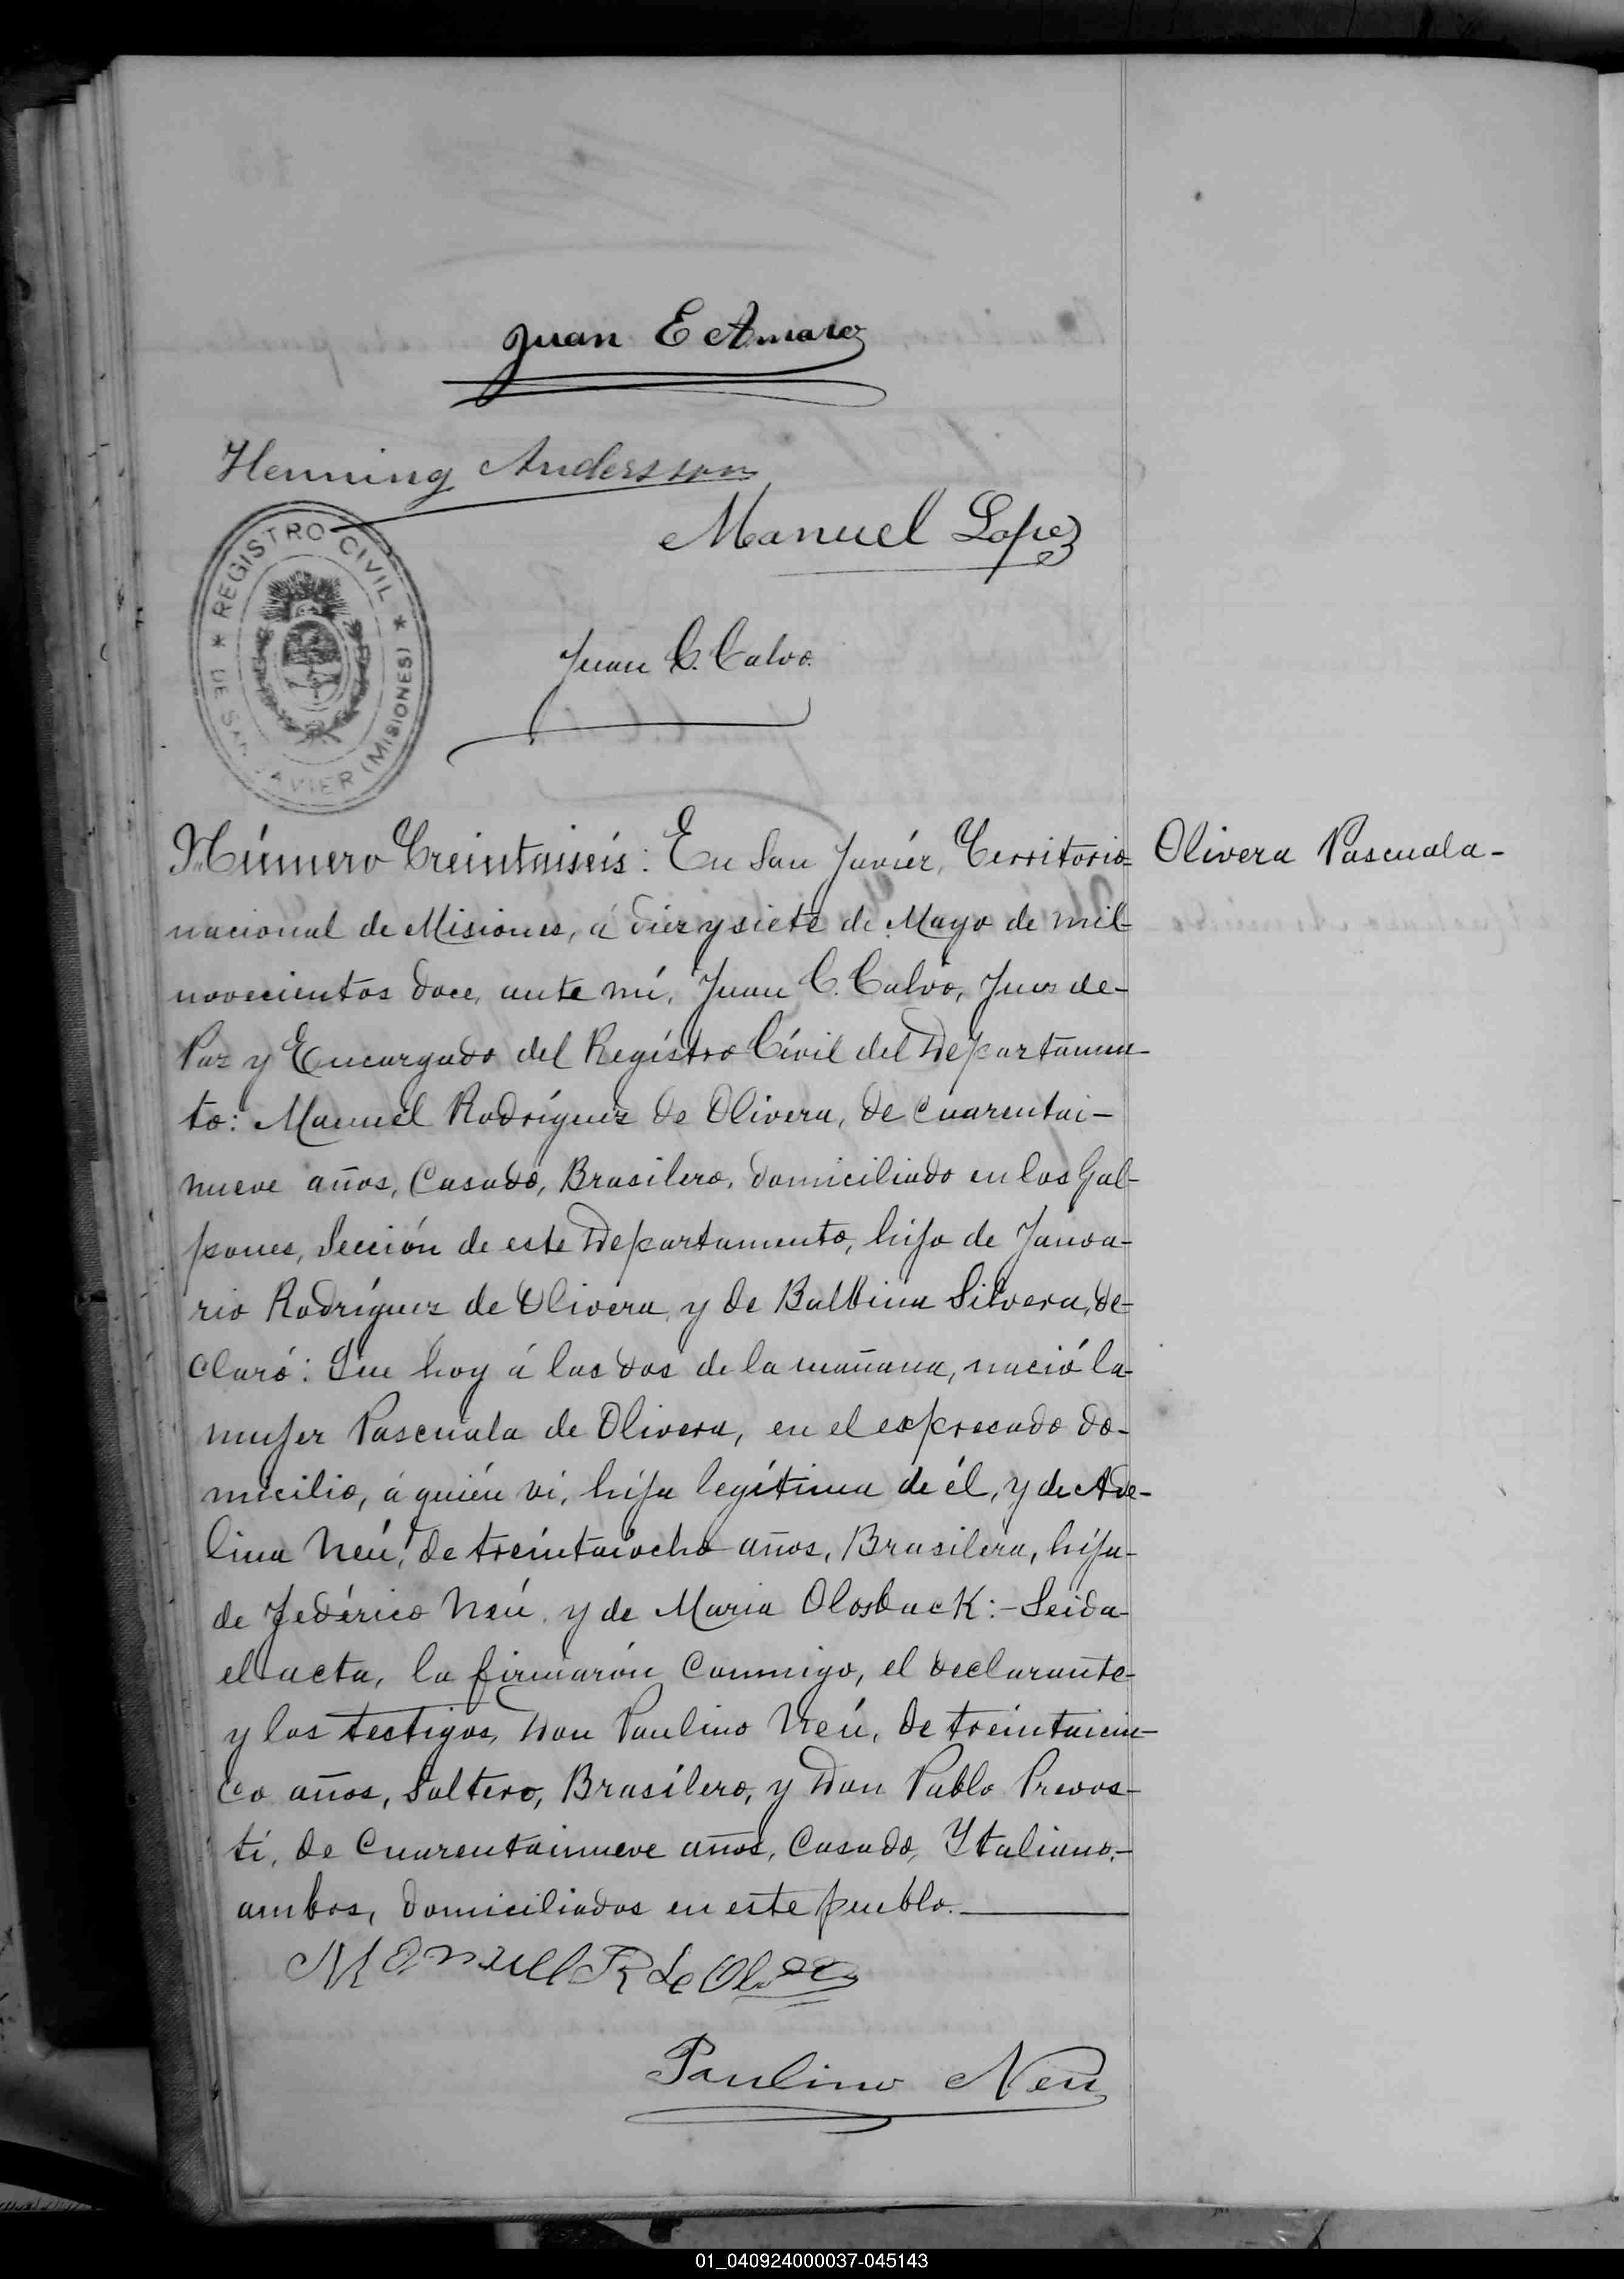 Juan E Amaro
Henning Andersson
Manuel Lopez
REGISTRO CIVIL
DE SAN JAVIER (MISIONES)
Juan C. Calvo.
Olivera Pascuala-
Número Treintaiseis: En San Javiér, Territorio-
nacional de Misiones, á diez y siete de Mayo de mil-
novecientos doce, ante mí, Juan C. Calvo, Juez de-
Paz y Encargado del Regístro Cívil del Departamen-
to: Manuel Rodríguez de Olivera, de cuarentai-
nueve años, Casado, Brasilero, domiciliado en los Gal-
pones, Sección de este Departamento, hijo de Janoa-
rio Rodríguez de Olivera, y de Balbina Silvera, de-
claró: Que hoy á las dos de la mañana, nació la-
mujer Pascuala de Olivera, en el exprecado do-
micilio, á quién ví, hija legítima de él, y de Ade-
lina Neú, de treintaiocho años, Brasilera, hija-
de Fedérico Neú, y de Maria Olosback:-Leida-
el acta, la firmarón Conmigo, el declarante-
y los testigos, Don Paulino Neú, de treintaicin-
co años, Soltero, Brasílero, y Don Pablo Prevos-
ti, de Cuarentainueve años, Casado, Ytaliano.-
ambos, domiciliados en este pueblo.
Manuel R de
Paulino Neu
01_040924000037-045143